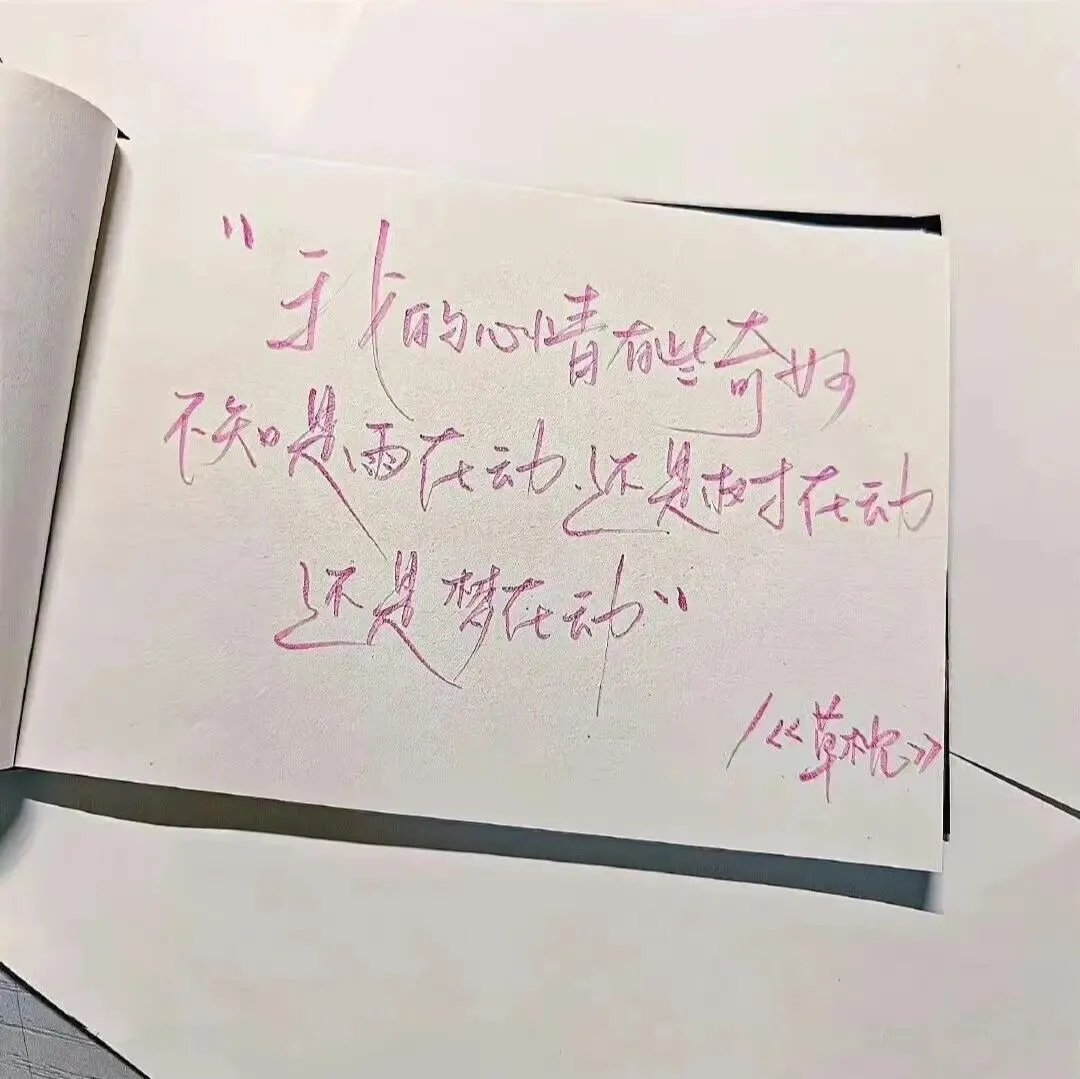 "我的心情有些奇妙
不知是雨在动、还是树在动
还是梦在动"
/《草枕》